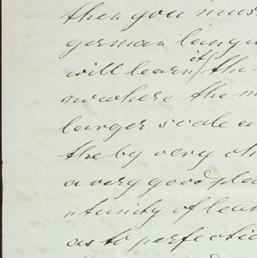 then you mus
german langu
will learn it the
nowhere the m
larger scale a
the by very ch
a very good plea
ntunity of lear
as to perfectio